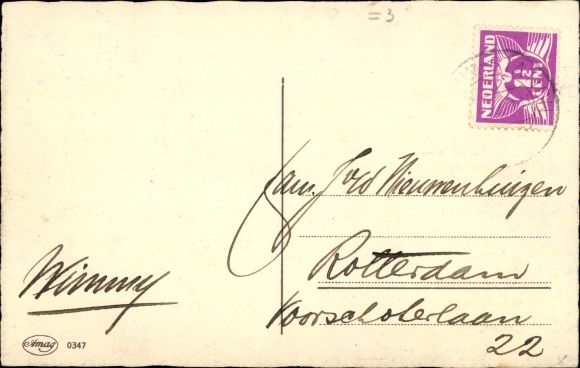 = 3
NEDERLAND
1½
CENT
Fam. v/d Nieuwenhuizen
Rotterdam
Voorschoterlaan
22
Wimmy
Amag 0347